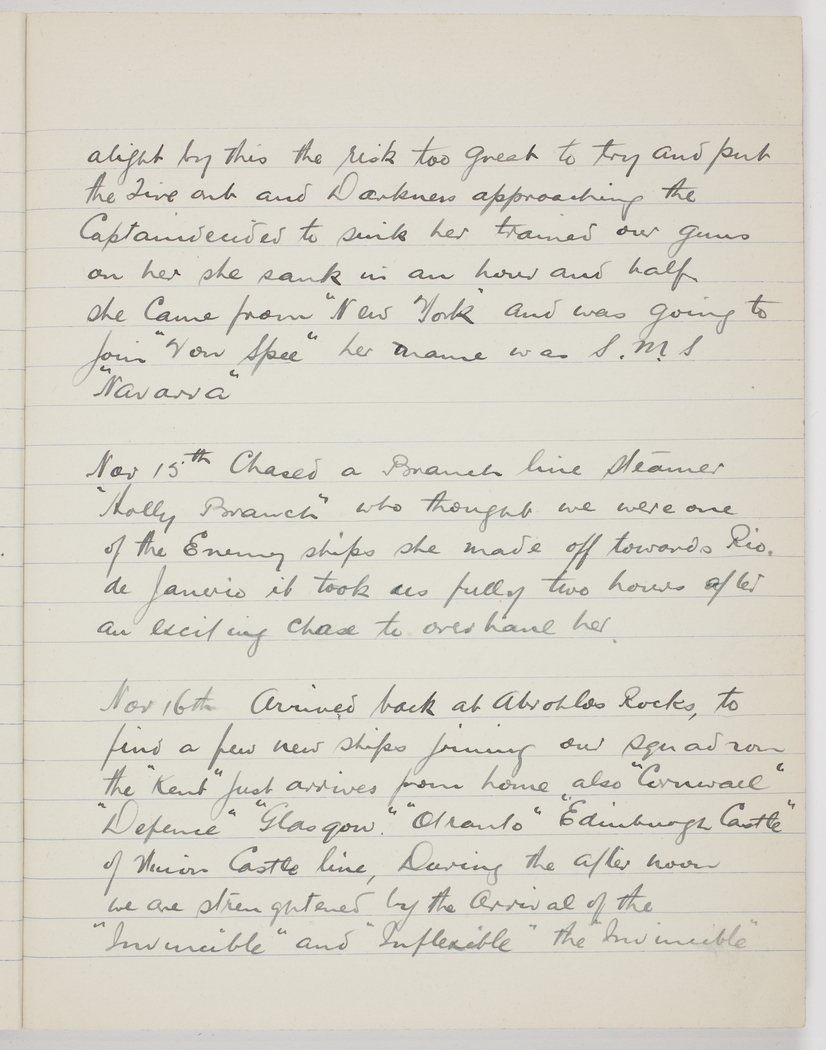 alight by this the risk too great to try and put
the Fire out and Darkness approaching the
Captain decided to sink her trained our guns
on her she sank in an hour and half
she Came from "New York" and was going to
join "Von Spee" her name was S.M.S
"Navarra"
Nov 15th Chased a Branch line steamer
"Holly Branch" who thought we were one
of the Enemy ships she made off towards Rio.
de Janerio it took us fully two hours after
an exciting chase to overhaul her.
Nov 16th Arrived back at Abrohlos Rocks, to
find a few new ships joining our squadron
the "Kent" Just arrives from home also "Cornwall"
"Defence" "Glasgow." "Otranto" "Edinburgh Castle"
of Union Castle line, During the after noon
we are strenghtened by the Arrival of the
"Invincible" and "Inflexible" the "Invincible"